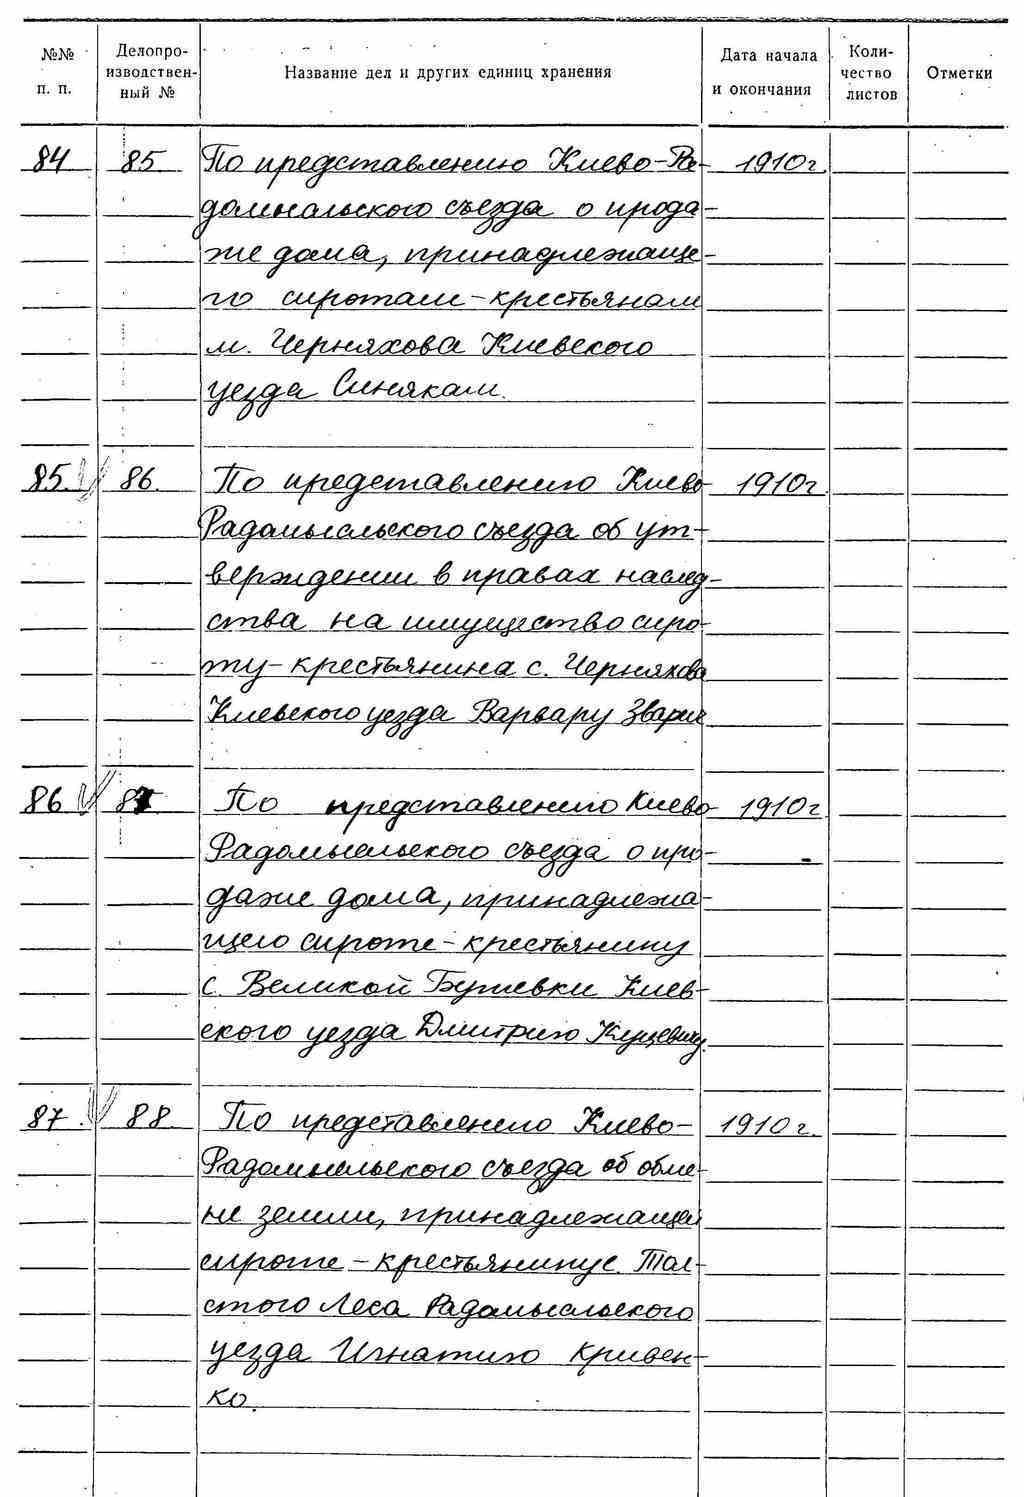 №№ п. п.
Делопро-
изводствен-
ный №
Название дел и других единиц хранения
Дата начала
и окончания
Коли-
чество
листов
Отметки
84 85 По представлению Киево-Ра- 1910г.
домысльского съезда о прода-
же дома, принадлежаще-
го сиротам-крестьянам
м. Черняхова Киевского
уезда Синякам.
85. 86. По представлению Киево 1910г.
Радомысльского съезда об ут-
верждении в правах наслед-
ства на имущество сиро-
ту-крестьянина с. Черняхова
Киевского уезда Варвару Зварич
86 87 По представлению Киево 1910г
Радомысельского съезда о про-
даже дома, принадлежа-
щего сироте-крестьянину
с. Великой Бугаевки Киев-
ского уезда Дмитрию
87. 88. По представлению Киево- 1910г.
Радомысльского съезда об обме-
не земли, принадлежащей
сироте-крестьянину с. Тол-
стого Леса Радомысльского
уезда Игнатию Кривен-
ко.